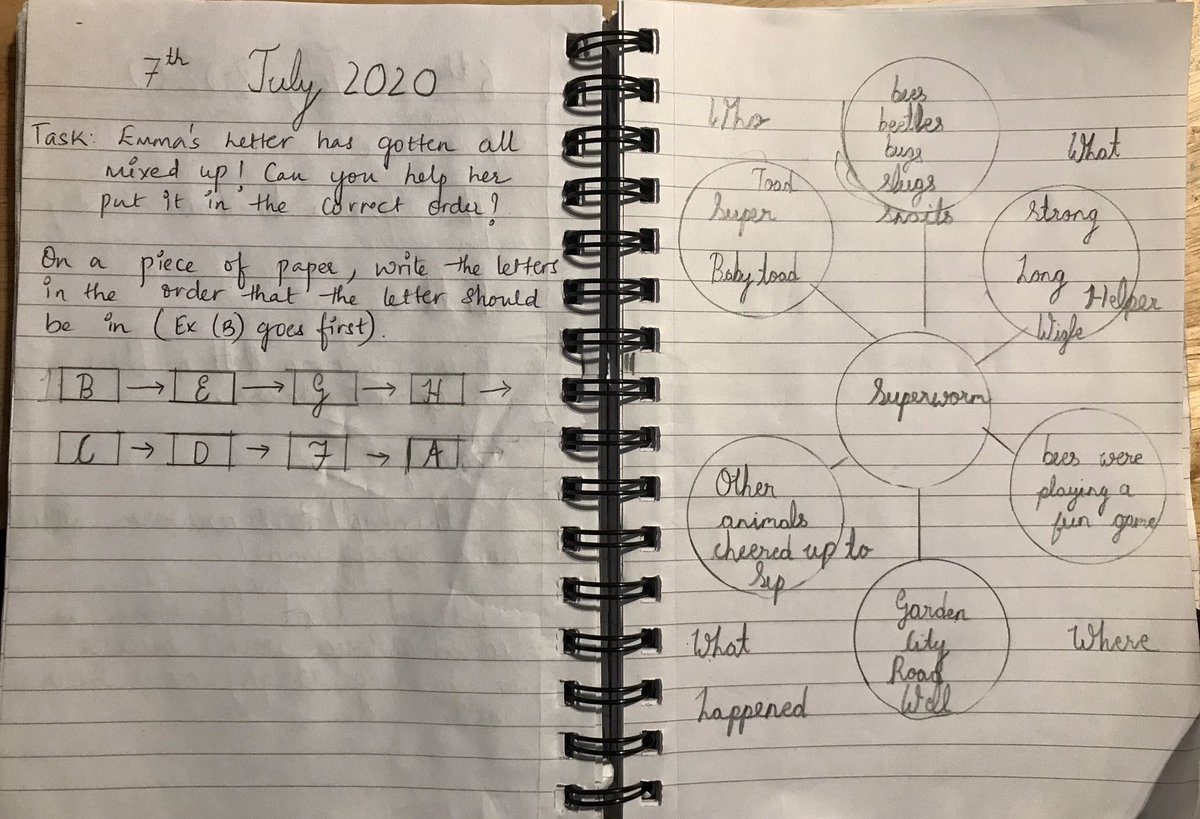 7th July 2020
Task: Emma's Letter has gotten all
mixed up! Can you help her
put it in the correct order?
On a piece of paper, write the letters
in the order that the letter should
be in (Ex (B) goes first).
B → E → G → H →
C → D → F → A →
Who
bees
beetles
bugs
slugs
What
Toad
Super
Baby toad
Strong
Long
Helper
Wigle
Superworm
bees were
playing a
fun game
Other
animals
cheered up to
Garden
City
Road
Well
What
happened
Where